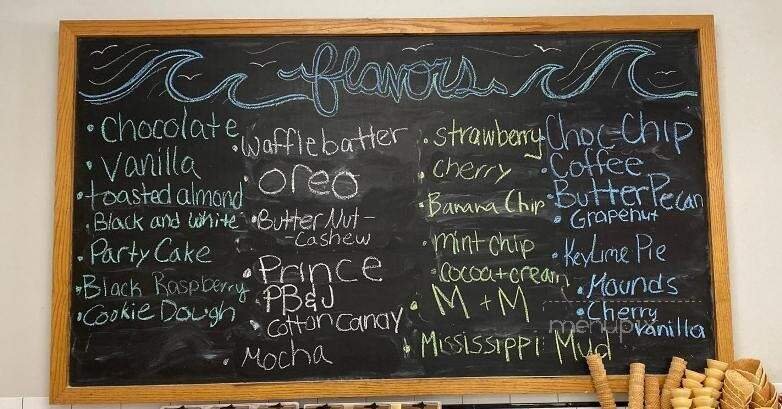 flavors
• Chocolate
• Vanilla
• toasted almond
• Black and white
• Party Cake
• Black Raspberry
• Cookie Dough
• Wafflebatter
• Oreo
• Butter Nut-
-Cashew
• Prince
• PB&J
• Cotton Canay
• Mocha
• strawberry
• cherry
• Banana Chip
• mint chip
• cocoa+cream
• M+M
• Mississippi Mud
• Choc-Chip
• Coffee
• Butter Pecan
• Grapenut
• KeyLime Pie
• Mounds
• Cherry
Vanilla